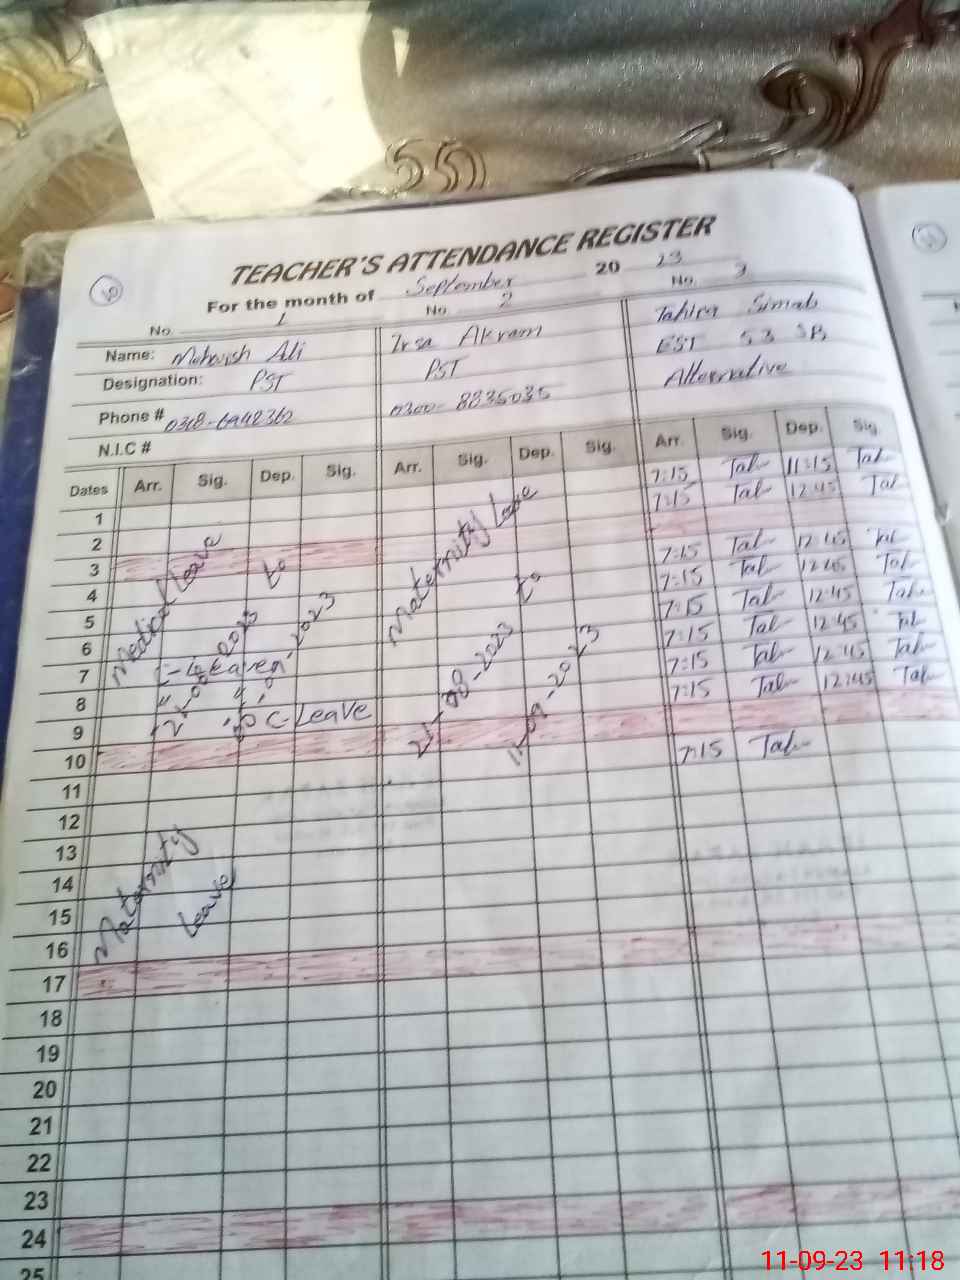 TEACHER'S ATTENDANCE REGISTER
For the month of September 2023
No 1 No. 2 No. 3
Name: Mehwish Ali Irsa Akram Tahira Simab
Designation: PST PST EST 53 SB
Phone # 0300-8835035 Alternative
N.I.C #
Dates Arr. Sig. Dep. Sig. Arr. Sig. Dep. Sig. Arr. Sig. Dep. Sig
7:15 Tah 11:15 Tah
1 7:15 Tah 12:45 Tah
2
3 7:15 Tah 12:45 Tah
4 7:15 Tah 12:45 Tah
5 7:15 Tah 12:45 Tah
6 7:15 Tah 12:45 Tah
7 7:15 Tah 12:45 Tah
8 7:15 Tah 12:45 Tah
9
10 7:15 Tah
11
12
13
14
15
16
17
18
19
20
21
22
23
24
25
Medical Leave
to
C-Leave
Maternity Leave
21-08-2023
to
11-09-2023
Maternity
Leave
11-09-23 11:18